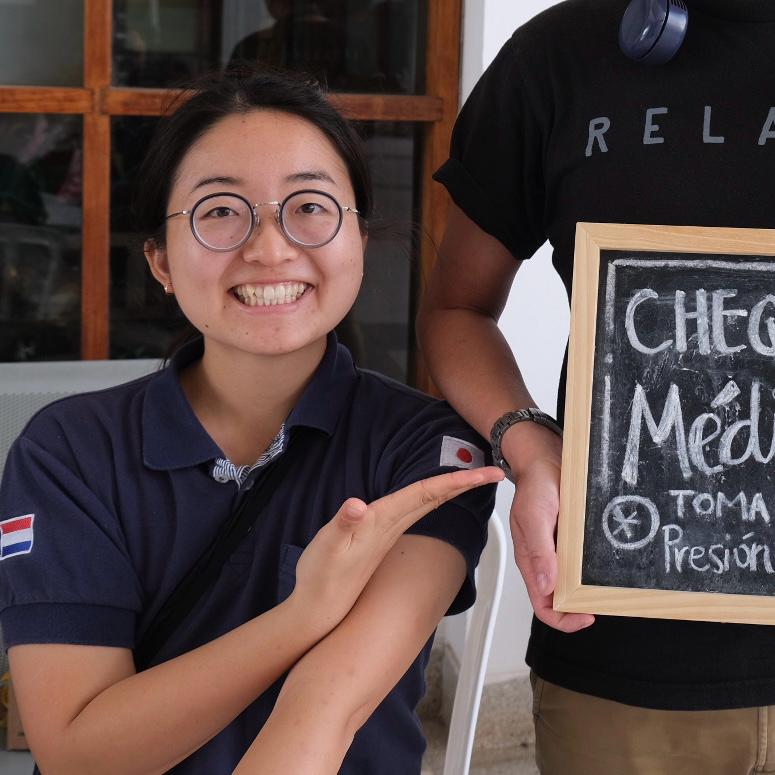 RELA
CHEQ
Médi
TOMA
Presión